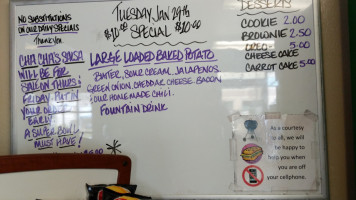 NO SUBSTITUTIONS
ON OUR DAILY SPECIALS
Thank you
CHA CHA'S SALSA
WILL BE FOR
SALE ON THURS!
FRIDAY. PUT IN
YOUR ORDER
EARLY
A SUPER BOWL
MUST HAVE!
TUESDAY JAN 29th
SPECIAL
LARGE LOADED BAKED POTATO
BUTTER, SOUR CREAM, JALAPENOS,
GREEN ONION, CHEDDAR CHEESE, BACON
& OUR HOMEMADE CHILI.
FOUNTAIN DRINK
DESSERTS
COOKIE 2.00
BROWNIE 2.50
OREO 5.00
CHEESECAKE
CARROT CAKE 5.00
As a courtesy
to all, we will
be happy to
help you when
you are off
your cellphone.